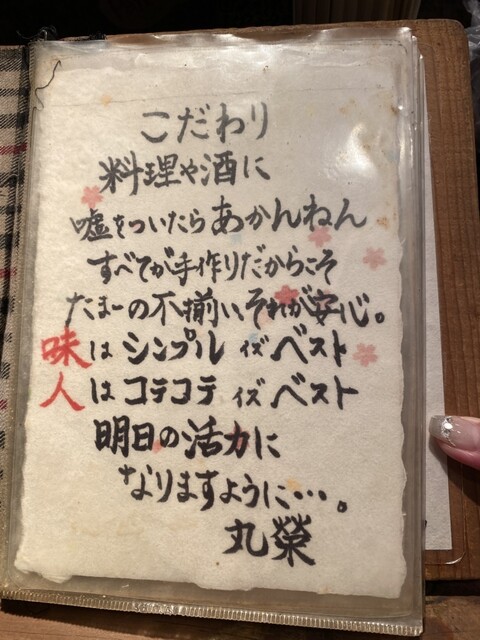 こだわり
料理や酒に
嘘をついたらあかんねん
すべてが手作りだからこそ
たまーの不揃いそれが安心。
味はシンプルイズベスト
人はコテコテイズベスト
明日の活力に
なりますように…。
丸榮